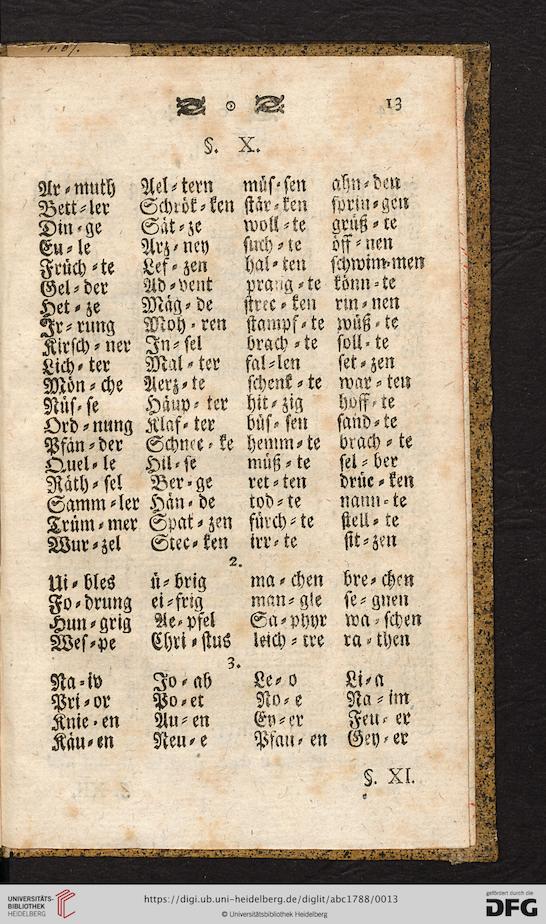 13
§. X.
Ar-muth Ael-tern müs-sen ahn-den
Bett-ler Schrök-ken stär-ken sprin-gen
Din-ge Sät-ze woll-te grüß-te
Eu-le Arz-ney such-te öff-nen
Früch-te Lef-zen hal-ten schwim-men
Gel-der Ad-vent prang-te könn-te
Het-ze Mäg-de strec-ken rin-nen
Ir-rung Moh-ren stampf-te wüß-te
Kirsch-ner In-sel brach-te soll-te
Lich-ter Mal-ter fal-len set-zen
Mön-che Aerz-te schenk-te war-ten
Nüs-se Häup-ter hit-zig hoff-te
Ord-nung Klaf-ter büs-sen sand-te
Pfän-der Schnec-ke hemm-te brach-te
Quel-le Hil-fe müß-te sel-ber
Räth-sel Ber-ge ret-ten drüc-ken
Samm-ler Hän-de tod-te nann-te
Trüm-mer Spat-zen fürch-te stell-te
Wur-zel Stec-ken irr-te sit-zen
2.
Ui-bles ü-brig ma-chen bre-chen
Fo-drung ei-frig man-gle se-gnen
Hun-grig Ae-pfel Sa-phyr wa-schen
Wes-pe Chri-stus leich-tre ra-then
3.
Na-iv Jo-ab Le-o Li-a
Pri-or Po-et No-e Na-im
Knie-en Au-en Ey-er Feu-er
Käu-en Neu-e Pfau-en Gey-er
§. XI.
UNIVERSITÄTS-
BIBLIOTHEK
HEIDELBERG
https://digi.ub.uni-heidelberg.de/diglit/abc1788/0013
© Universitätsbibliothek Heidelberg
gefördert durch die
DFG